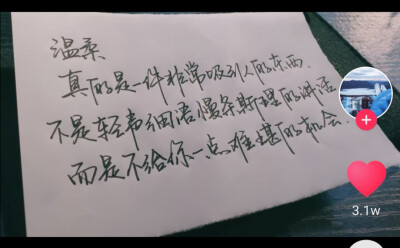 温柔
真的是一件非常吸引人的东西.
不是轻声细语慢条斯理的讲话
而是不给你一点难堪的机会.
3.1w